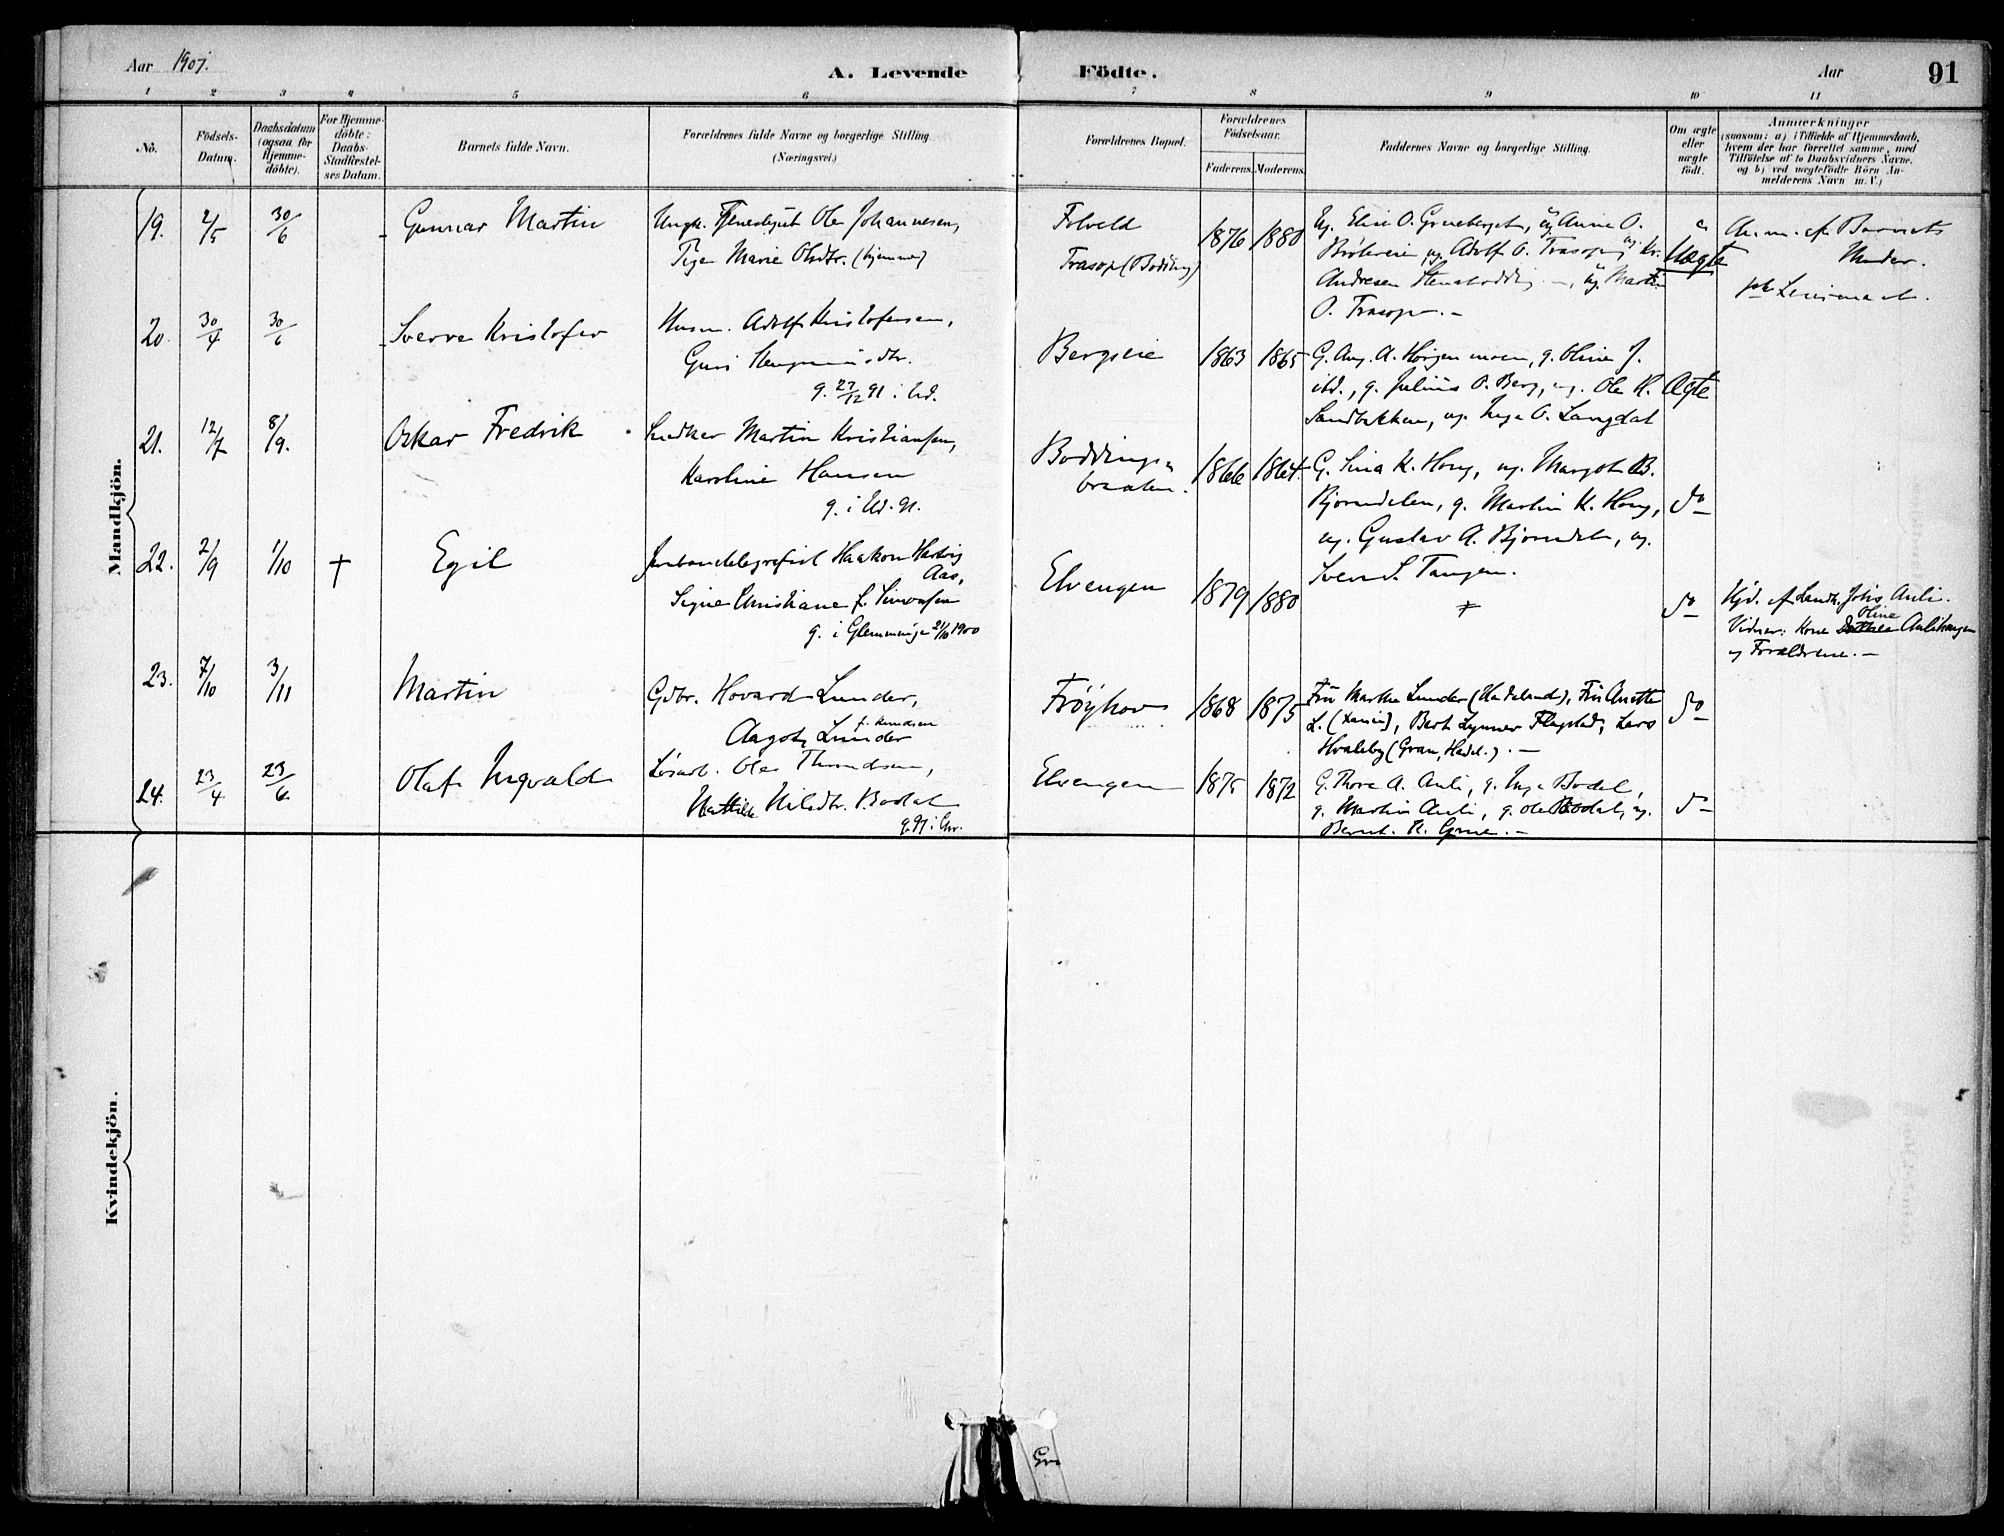 Aar 1907.
A. Levende Födte.
Aar
91
1 2 3 4 5 6 7 8 9 10 11
No.
Födsels-
Datum.
Daabsdatum
(ogsaa for
Hjemme-
döbte).
For Hjemme-
döbte:
Daabs-
Stadfæstel-
ses Datum.
Barnets fulde Navn.
Forældrenes fulde Navne og borgerlige Stilling.
(Næringsvei.)
Forældrenes Bopæl.
Forældrenes
Födselsaar.
Faderens. Moderens.
Faddernes Navne og borgerlige Stilling.
Om ægte
eller
uægte
födt.
Anmærkninger
(saasom: a) i Tilfælde af Hjemmedaab,
hvem der har forrettet samme, med
Tilföielse af to Daabsvidners Navne,
og b) ved uægtefödte Börn An-
melderens Navn m. V.)
Mandkjön.
19. 2/5 30/6 Gunnar Martin
Ungk. Tjenestegut Ole Johannesen,
Pige Marie Olsdtr. (hjemme)
Folveld
Trasop (Bodding)
1876 1880
Ug. Elise O. Grueberget, ug. Anne O.
ug. Adolf O. Trasop, ug. Kr.
Andresen ug. Martin
O. Trasop. -
Uægte
Anm. af Barnets
Moder.
20. 30/4 30/6 Sverre Kristofer
Husm. Adolf Kristofersen,
Guri
g. 27/12 91 i Ud.
Bergseie
1863 1865
G. Aug. A. g. Oline J.
ibd., g. Julius O. Berg, ug. Ole K.
Sandbakken, ug. Inga O. Langdal
Ægte
21. 12/7 8/9. Oskar Fredrik
Snedker Martin Kristiansen,
Karoline Hansen
g. i Ud. 91.
Boddings-
braaten.
1866 1864.
G. Lina K. Houg, ug. Margot B.
Bjørndalen, g. Martin K. Houg,
ug. Gustav A. Bjørndal, ug.
Sven S. Tangen.
do
22. 2/9 1/10 † Egil
Jernbanetelegrafist Haakon Hartvig
Aas,
Signe Christiane f. Simonsen
g. i Glemminge 21/10 1900
Elvengen
1879 1880
†
do
Hjd. af Landh. Johs. Auli.
Oline
Vidner: Kone Dorthea Aulihaugen
og Forældrene. -
23. 7/10 3/11 Martin
Gdbr. Hovard Lunder,
f. Knudsen
Aagot Lunder
Frøyhov
1868 1875
Fru Marthe Lunder (Hadeland), Fru Anette
L. Flagstad, Lars
Hvaleby (Gran, Hadel.). -
do
24. 23/4 23/6 Olaf Ingvald
Løsarb. Ole Thorndsen,
Mathilde Nilsdtr. Bodal
g. 97 i Chr.
Elvengen
1875 1872
G. Thora A. Auli, g. Inga Bodal,
g. Martin Auli, g. Ole Bodal, ug.
Bernt. H. Grue. -
do
Kvindekjön.